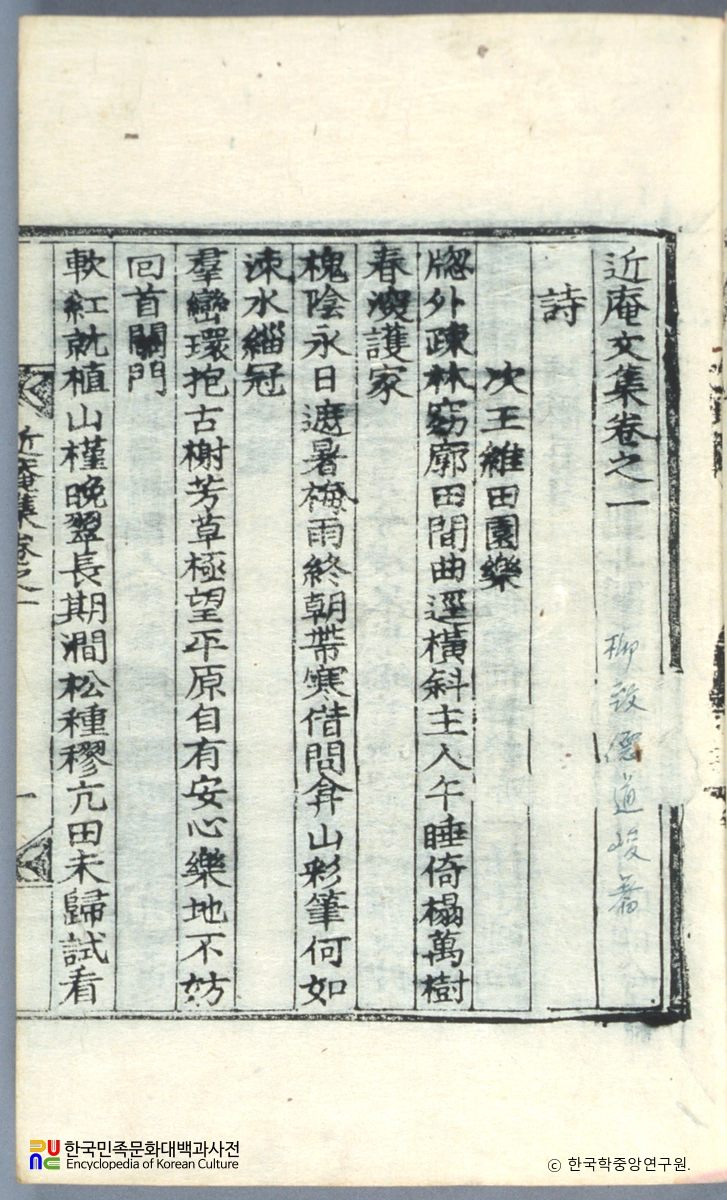 近庵文集卷之一
詩
次王維田園樂
牕外疎林窈廓田間曲逕橫斜主人午睡倚榻萬樹
春濃護家
槐陰永日遮暑梅雨終朝帶寒借問弇山彩筆何如
涑水緇冠
羣巒環抱古榭芳草極望平原自有安心樂地不妨
回首關門
軟紅就植山槿晚翠長期澗松種穋亢田未歸試看
近庵集卷之一
一
한국민족문화대백과사전
Encyclopedia of Korean Culture
ⓒ 한국학중앙연구원.